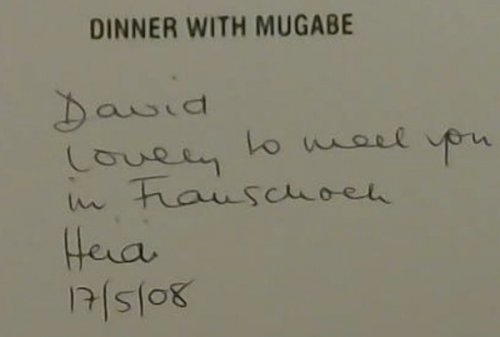 DINNER WITH MUGABE
David
Lovely to meet you
in Franschoek
Heidi
17/5/08